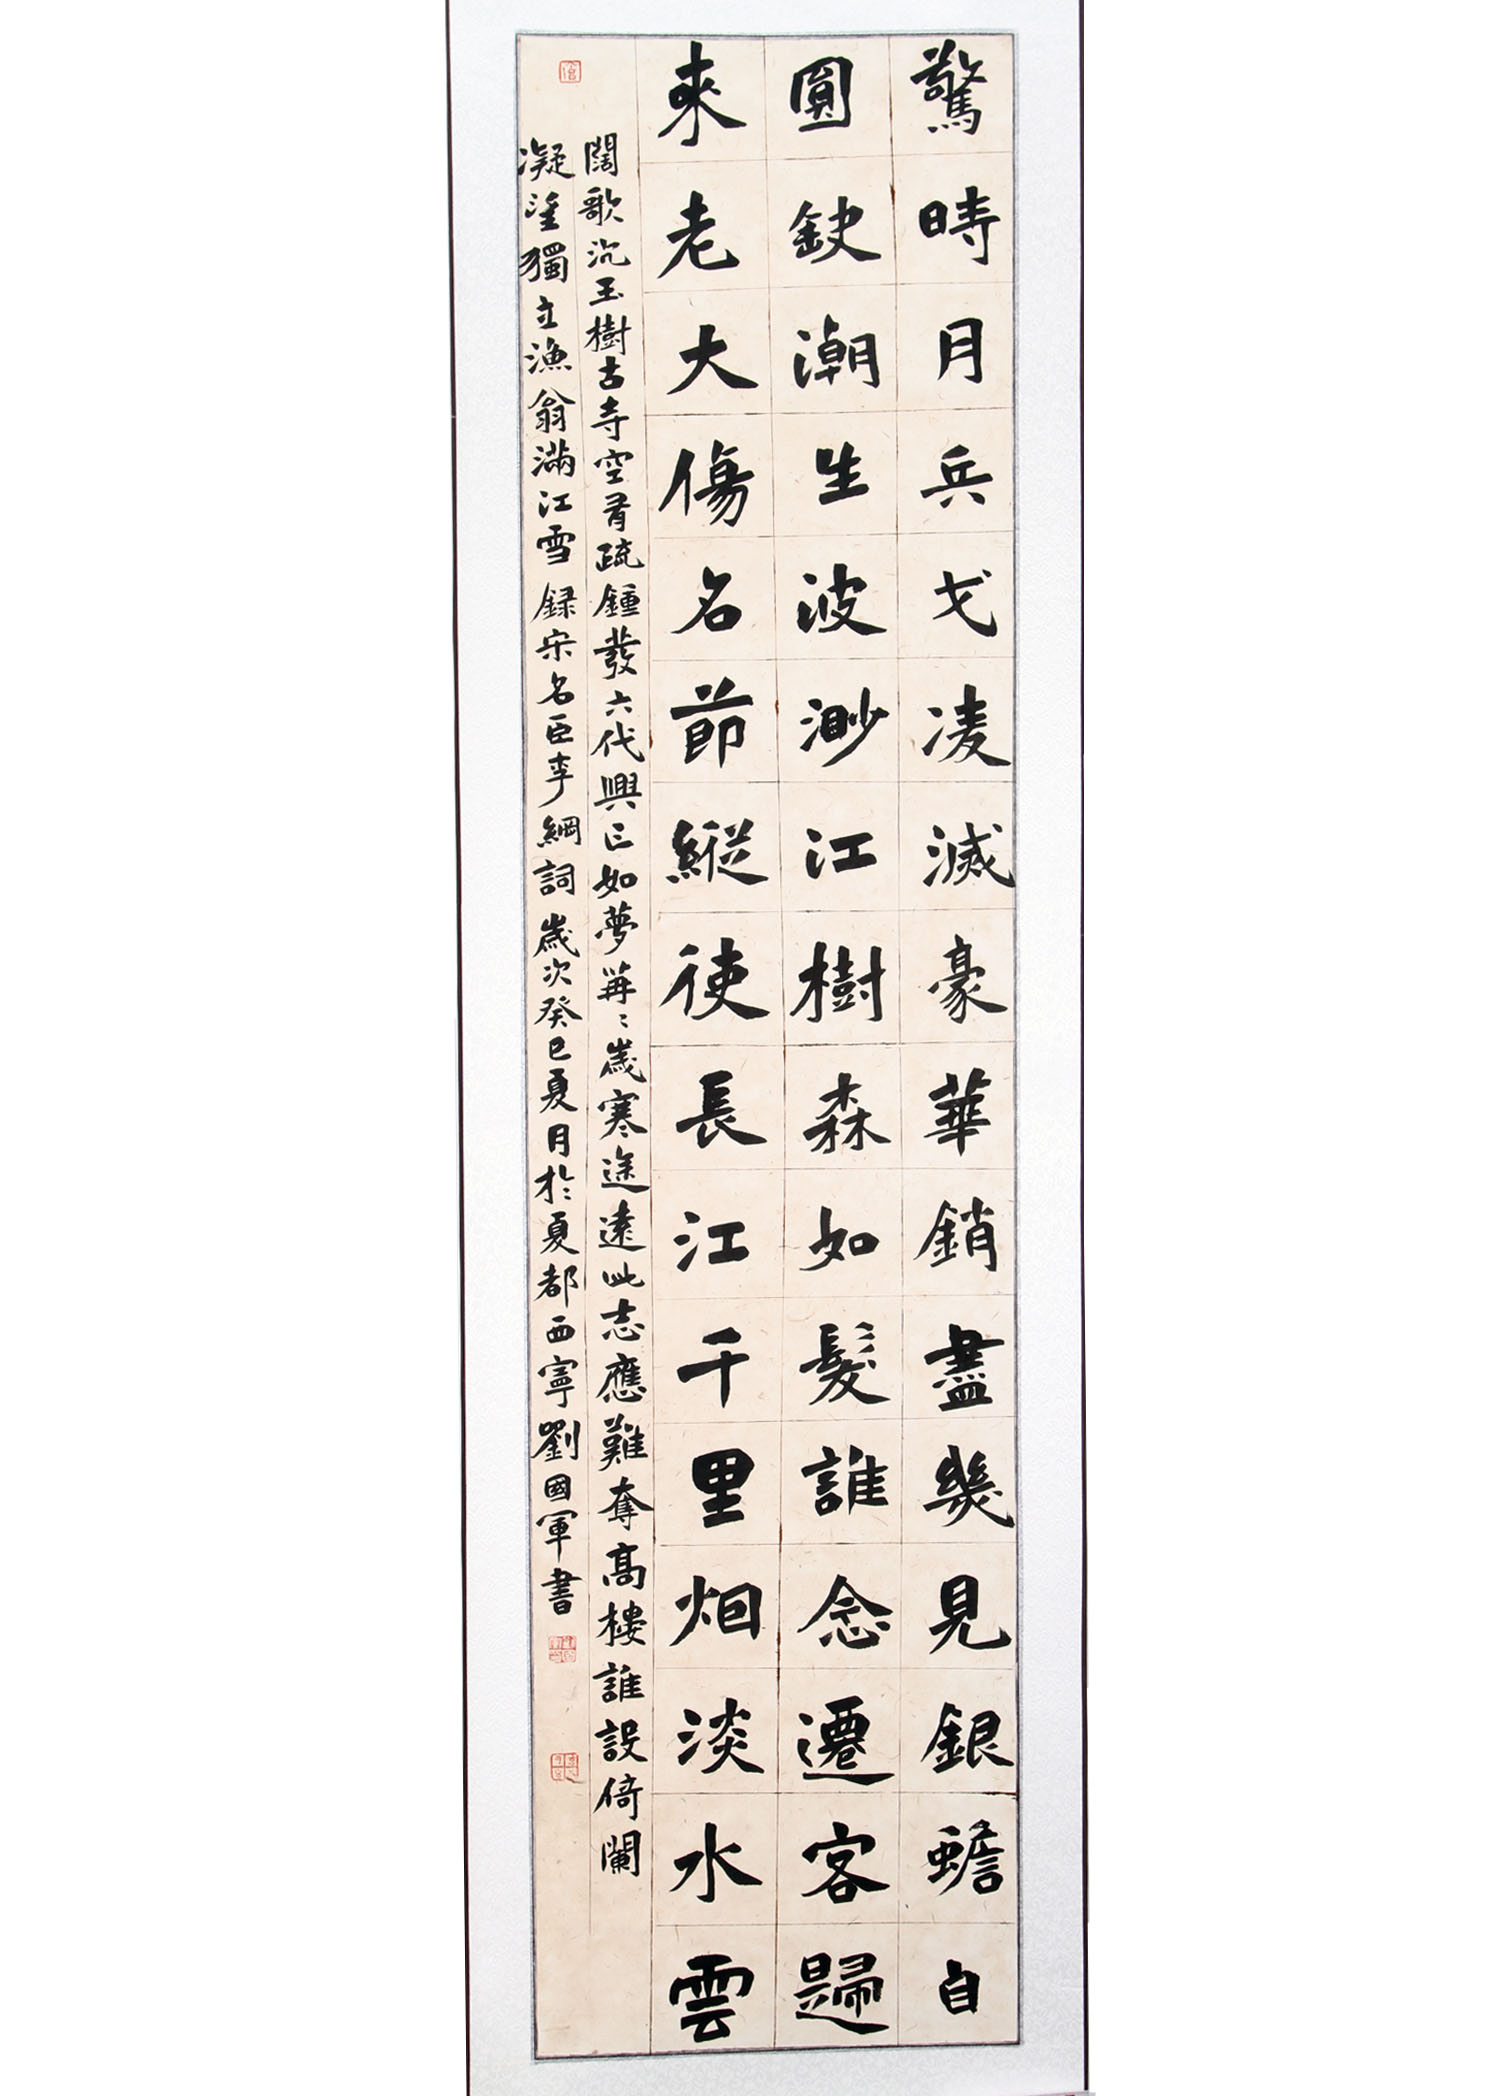 驚時月兵戈凌滅豪華銷盡幾見銀蟾自
圓缺潮生波渺江樹森如髮誰念遷客歸
來老大傷名節縱使長江千里烟淡水雲
闊歌沉玉樹古寺空有疏鍾發六代興亡如夢苒〻歲寒途遠此志應難奪高樓誰設倚闌
凝望獨立漁翁滿江雪 錄宋名臣李綱詞 歲次癸巳夏月於夏都西寧劉國軍書